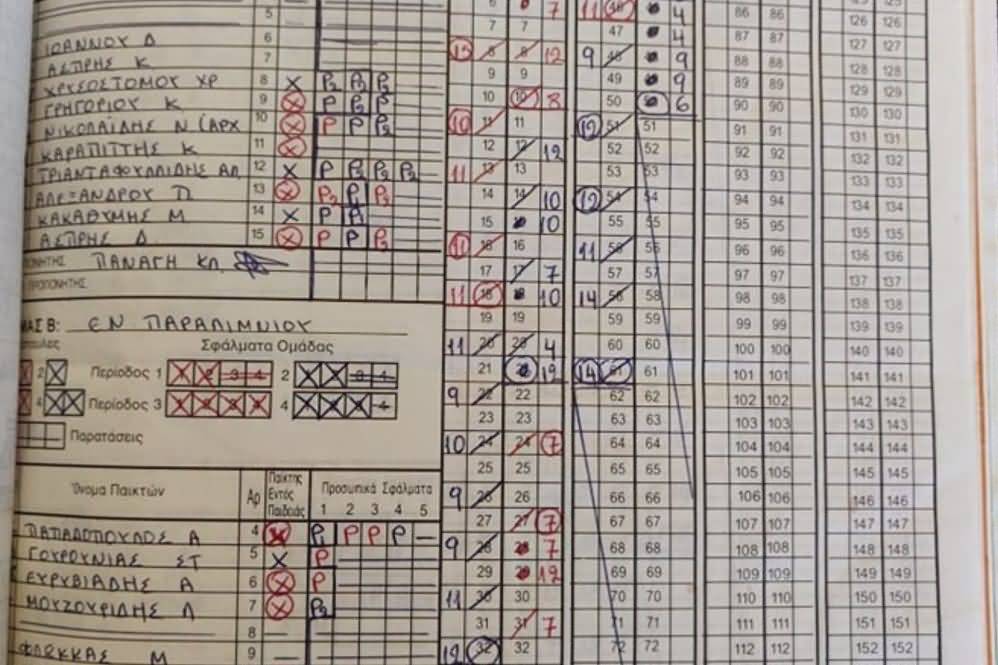 5
ΙΩΑΝΝΟΥ Δ 6
ΑΣΠΡΗΣ Κ 7
ΧΡΥΣΟΣΤΟΜΟΥ ΧΡ 8 X P2 P2 P2
ΓΡΗΓΟΡΙΟΥ Κ 9 X P P2 P
ΝΙΚΟΛΑΪΔΗΣ Ν (ΑΡΧ 10 X P P P2
ΚΑΡΑΠΙΤΤΗΣ Κ 11 X
ΤΡΙΑΝΤΑΦΥΛΛΙΔΗΣ ΑΛ 12 X P P2 P2 P2
ΑΛΕΞΑΝΔΡΟΥ Π 13 X P2 P1 P2
ΚΑΚΑΘΥΜΗΣ Μ 14 X P
ΑΣΠΡΗΣ Δ 15 X P P P2
ΠΑΝΑΓΗ ΚΛ.
Β: ΕΝ ΠΑΡΑΛΙΜΝΙΟΥ
Σφάλματα Ομάδας
2 Περίοδος 1 2
4 Περίοδος 3 4
Παρατάσεις
Όνομα Παικτών Αρ Παίκτης Εντός Παιδιάς Προσωπικά Σφάλματα
1 2 3 4 5
ΠΑΠΑΔΟΠΟΥΛΟΣ Α 4 X P1 P P P
ΓΟΥΡΟΥΝΙΑΣ ΣΤ 5 X P
ΕΥΡΥΒΙΑΔΗΣ Α 6 X P
ΜΟΥΖΟΥΡΙΔΗΣ Λ 7 X P2
8
ΦΛΩΚΚΑΣ Μ 9
6 7 11 46 4 86 86 126 126
7 7 47 4 87 87 127 127
13 8 8 12 9 48 9 88 88 128 128
9 9 49 9 89 89 129 129
10 10 8 50 6 90 90 130 130
10 11 11 12 51 51 91 91 131 131
12 12 12 52 52 92 92 132 132
11 13 13 53 53 93 93 133 133
14 14 10 12 54 54 94 94 134 134
15 10 55 55 95 95 135 135
11 16 16 11 56 56 96 96 136 136
17 17 7 57 57 97 97 137 137
11 18 10 14 58 58 98 98 138 138
19 19 59 59 99 99 139 139
11 20 20 4 60 60 100 100 140 140
21 12 14 61 61 101 101 141 141
9 22 22 62 62 102 102 142 142
23 23 63 63 103 103 143 143
10 24 24 7 64 64 104 104 144 144
25 25 65 65 105 105 145 145
9 26 26 66 66 106 106 146 146
27 27 7 67 67 107 107 147 147
9 28 28 7 68 68 108 108 148 148
29 12 69 69 109 109 149 149
11 30 30 70 70 110 110 150 150
31 31 7 71 71 111 111 151 151
12 32 32 72 72 112 112 152 152